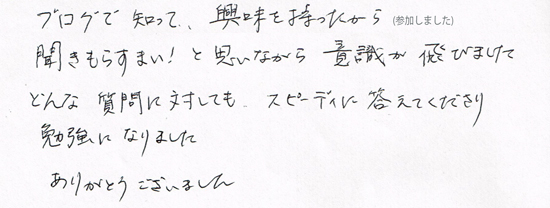 ブログで知って、興味を持ったから (参加しました)
聞きもらすまい!と思いながら意識が飛びました
どんな質問に対しても、スピーディに答えてくださり
勉強になりました
ありがとうございました